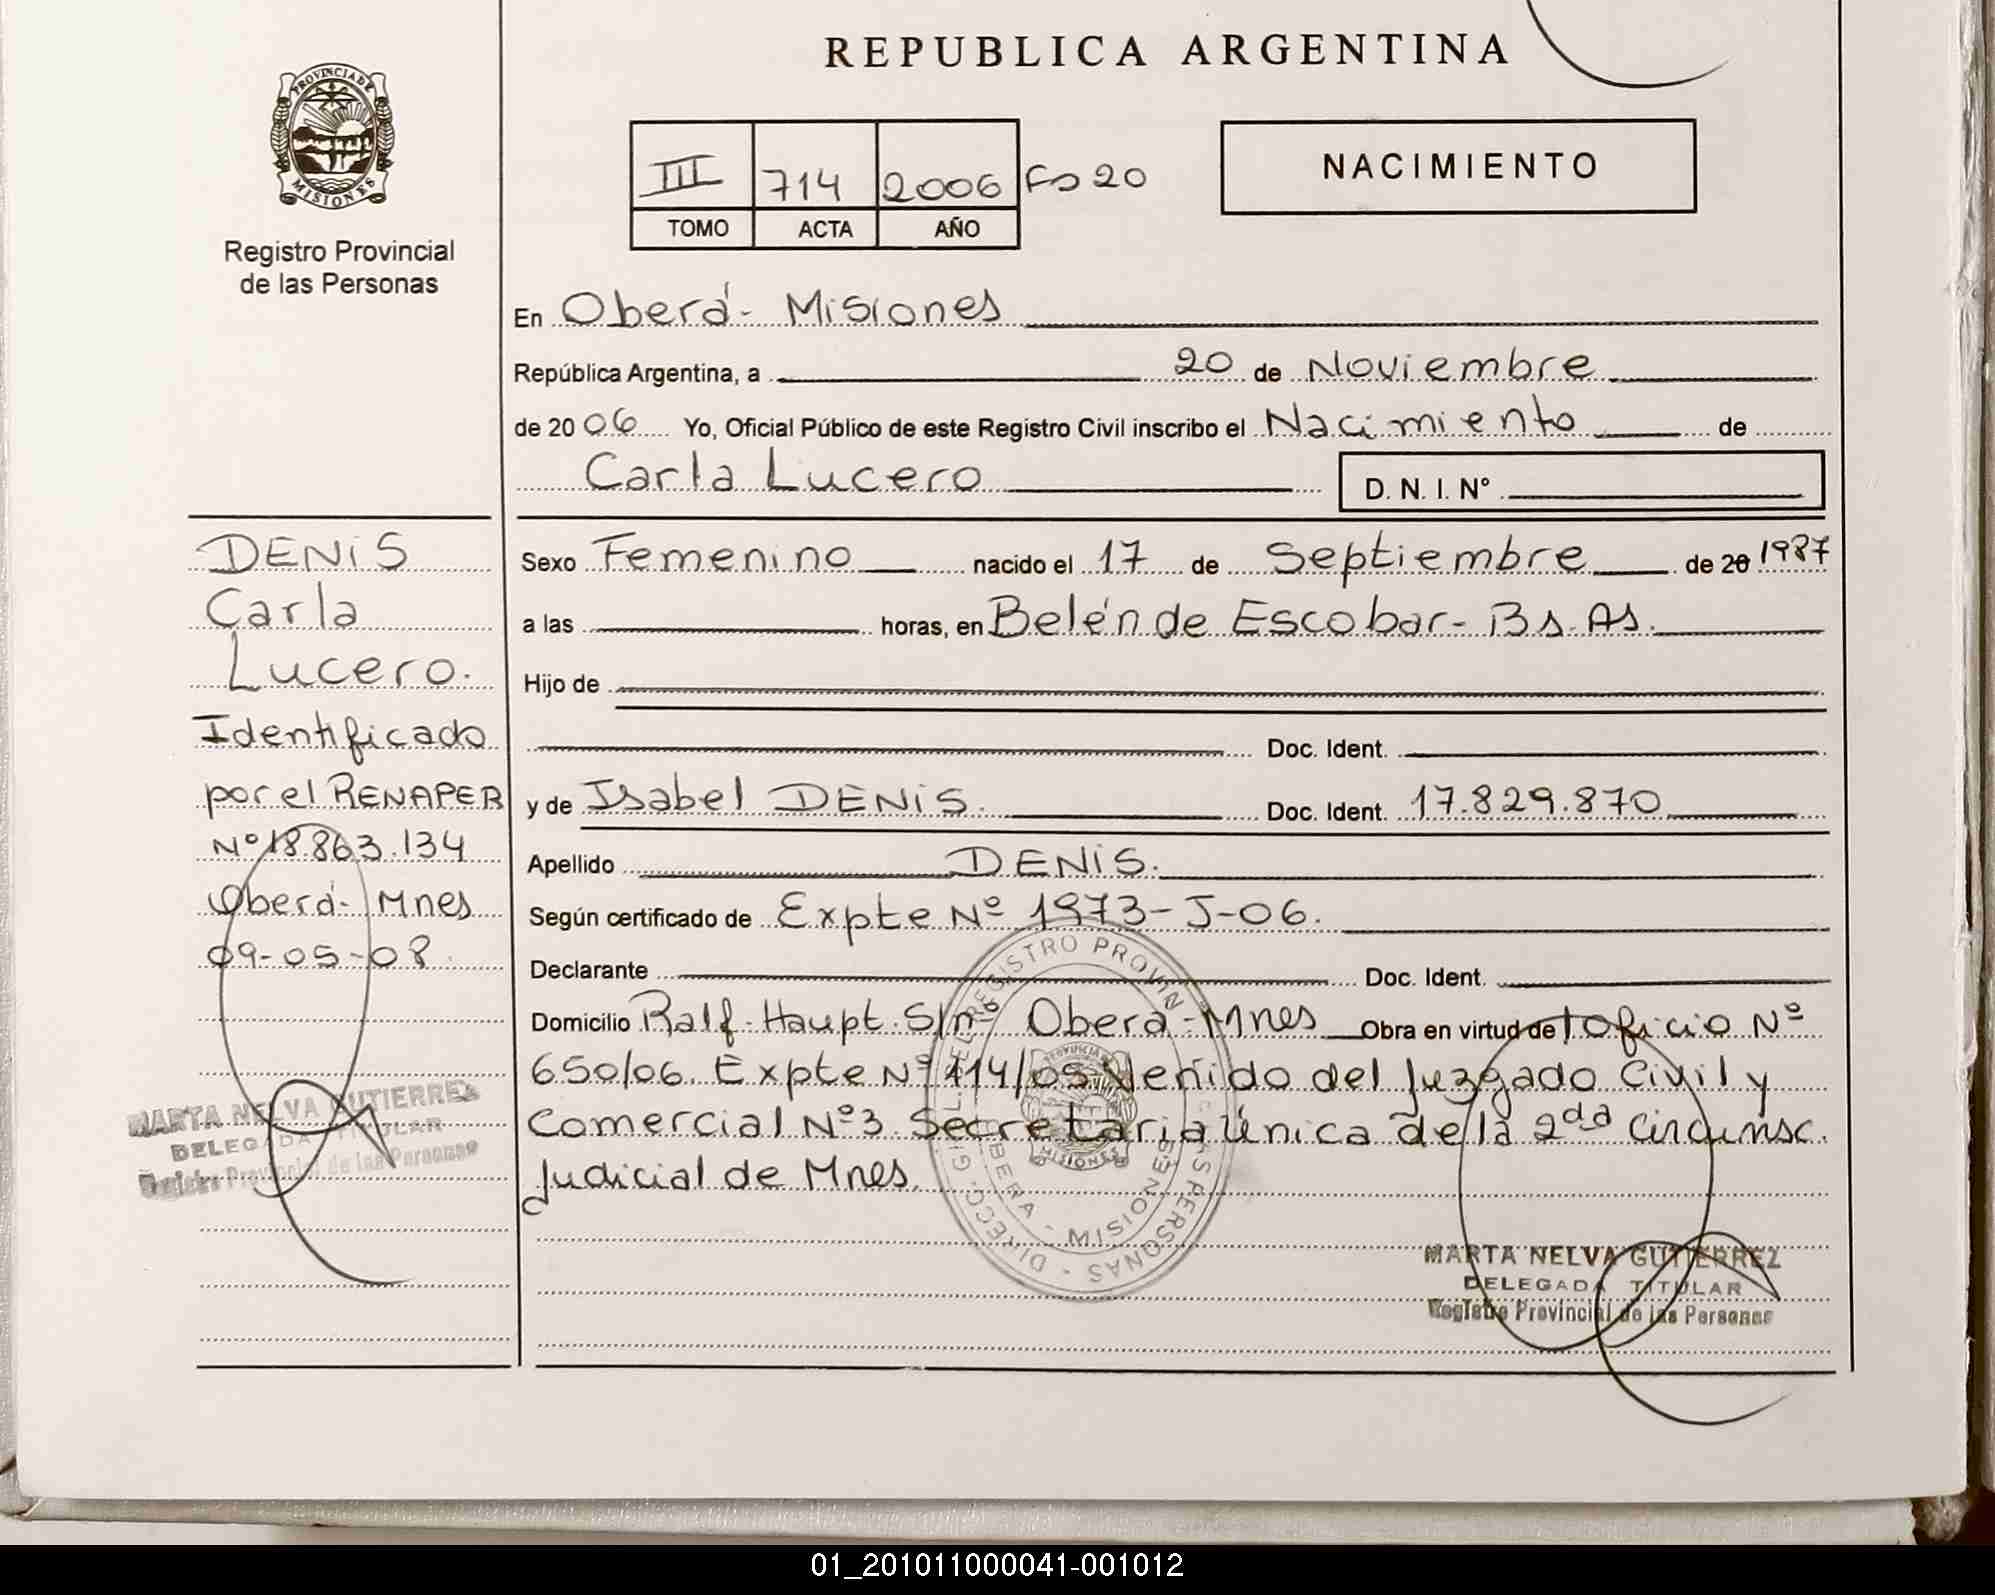 REPUBLICA ARGENTINA
PROVINCIA DE
MISIONES
Registro Provincial
de las Personas
III 714 2006 Fo 20
TOMO ACTA AÑO
NACIMIENTO
En Oberá- Misiones
República Argentina, a 20 de Noviembre
de 20 06 Yo, Oficial Público de este Registro Civil inscribo el Nacimiento de
Carla Lucero D. N. I. Nº
Sexo Femenino nacido el 17 de Septiembre de 20 1987
a las horas, en Belén de Escobar- Bs. As.
Hijo de
Doc. Ident.
y de Isabel DENIS. Doc. Ident. 17.829.870
Apellido DENIS.
Según certificado de Expte Nº 1973-J-06.
Declarante Doc. Ident.
Domicilio Ralf Haupt S/nº Oberá-Mnes Obra en virtud de Oficio Nº
650/06. Expte Nº 114/05 Venido del Juzgado Civil y
Comercial Nº3 Secretaria Única de la 2da Circunsc.
Judicial de Mnes.
MARTA NELVA GUTIERREZ
DELEGADA TITULAR
Registro Provincial de las Personas
DENIS
Carla
Lucero.
Identificado
por el RENAPER
Nº 18.863.134
Oberá- Mnes
09-05-08.
MARTA NELVA GUTIERREZ
DELEGADA TITULAR
Registro Provincial de las Personas
01_201011000041-001012